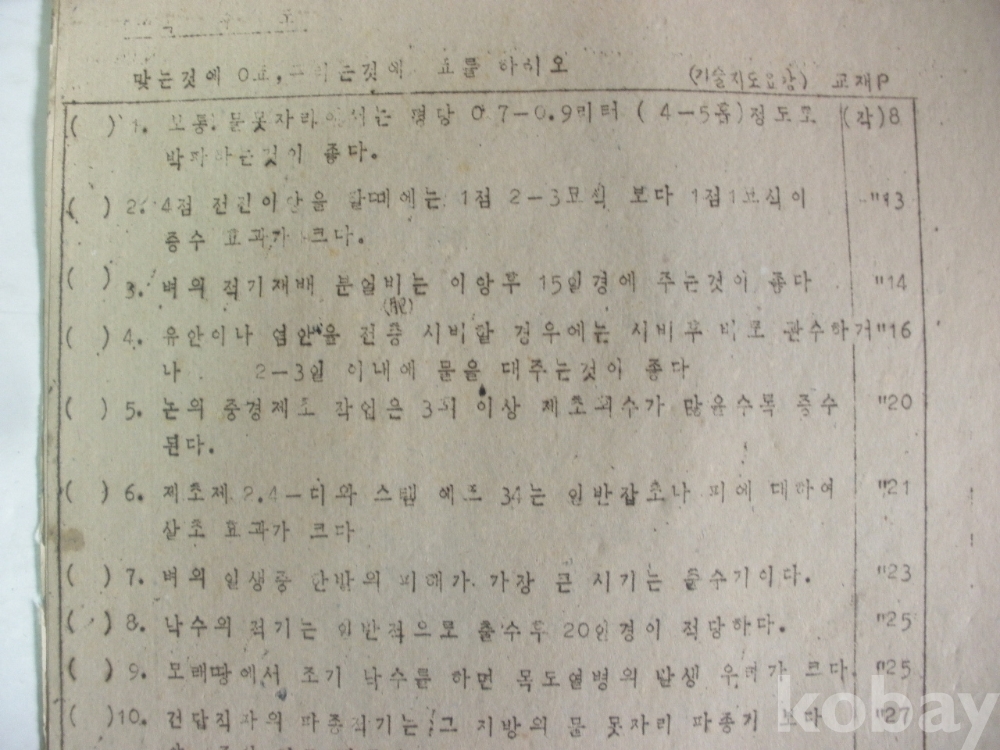 맞는것에 O표, 는것에 표를 하시오 (기술지도요강) 교재P
( ) 1. 보통 물못자리에서는 평당 0.7-0.9리터 ( 4-5홉)정도로 (각)8
박파하는것이 좋다.
( ) 2. 4점 이앙을 할때에는 1점 2-3묘식 보다 1점1묘식이 "13
증수 효과가 크다.
( ) 3. 벼의 적기재배 분얼비는 이앙후 15일경에 주는것이 좋다 "14
(肥)
( ) 4. 유안이나 염안을 전층 시비할 경우에는 시비후 바로 관수하거 "16
나 2-3일 이내에 물을 대주는것이 좋다
( ) 5. 논의 중경제초 작업은 3회 이상 제초회수가 많을수록 증수 "20
된다.
( ) 6. 제초제 2.4-디와 스템 에프 34는 일반잡초나 피에 대하여 "21
살초 효과가 크다
( ) 7. 벼의 일생중 한발의 피해가 가장 큰 시기는 출수기이다. "23
( ) 8. 낙수의 적기는 일반적으로 출수후 20일경이 적당하다. "25
( ) 9. 모래땅에서 조기 낙수를 하면 목도열병의 발생 우려가 크다. "25
( ) 10. 건답직파의 파종적기는 그 지방의 물 못자리 파종기 보다 "27
kobay